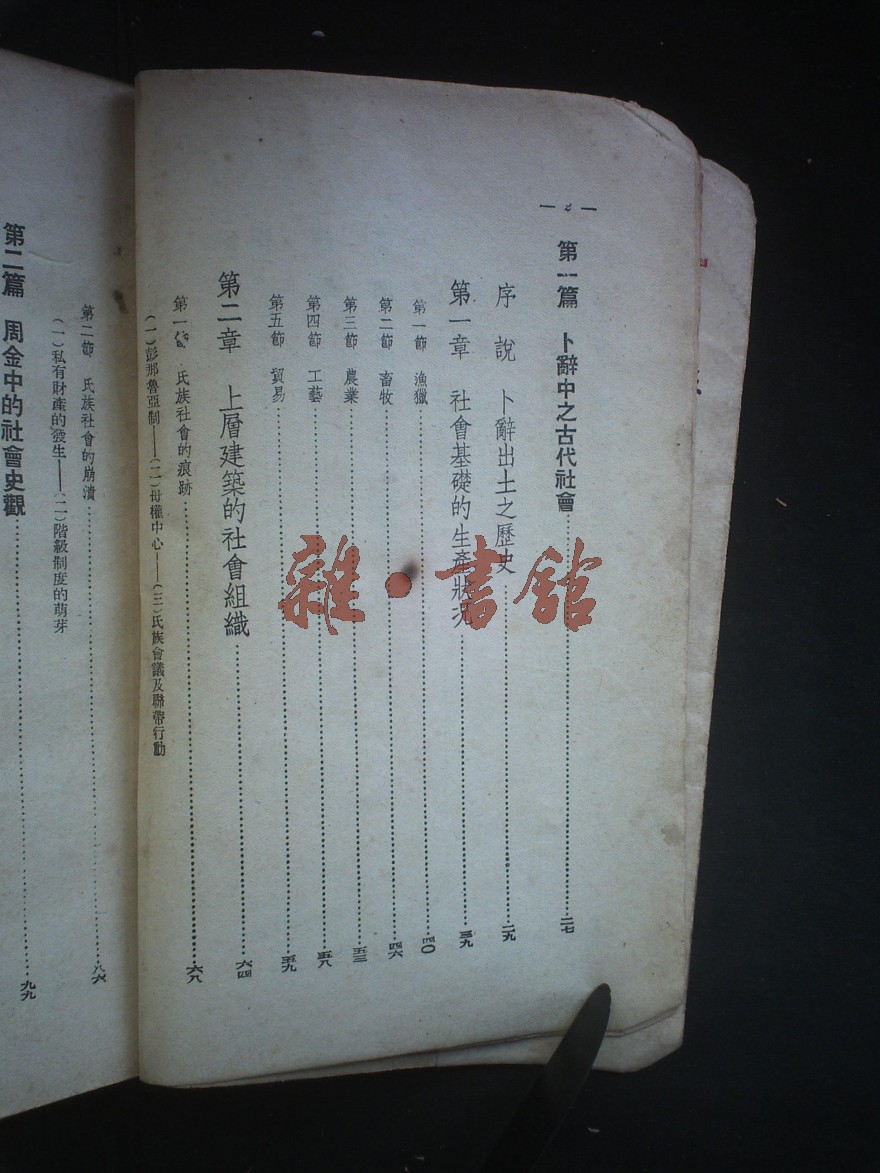 — 2 —
第一篇 卜辭中之古代社會……二七
序說 卜辭出土之歷史……二九
第一章 社會基礎的生產狀况……三九
第一節 漁獵……四〇
第二節 畜牧……四六
第三節 農業……五三
第四節 工藝……五八
第五節 貿易……五九
第二章 上層建築的社會組織……六四
第一節 氏族社會的痕跡……六八
(一)彭那魯亞制——(二)母權中心——(三)氏族會議及聯帶行動
第二節 氏族社會的崩潰……八六
(一)私有財產的發生——(二)階級制度的萌芽
第二篇 周金中的社會史觀……九九
雜·書館